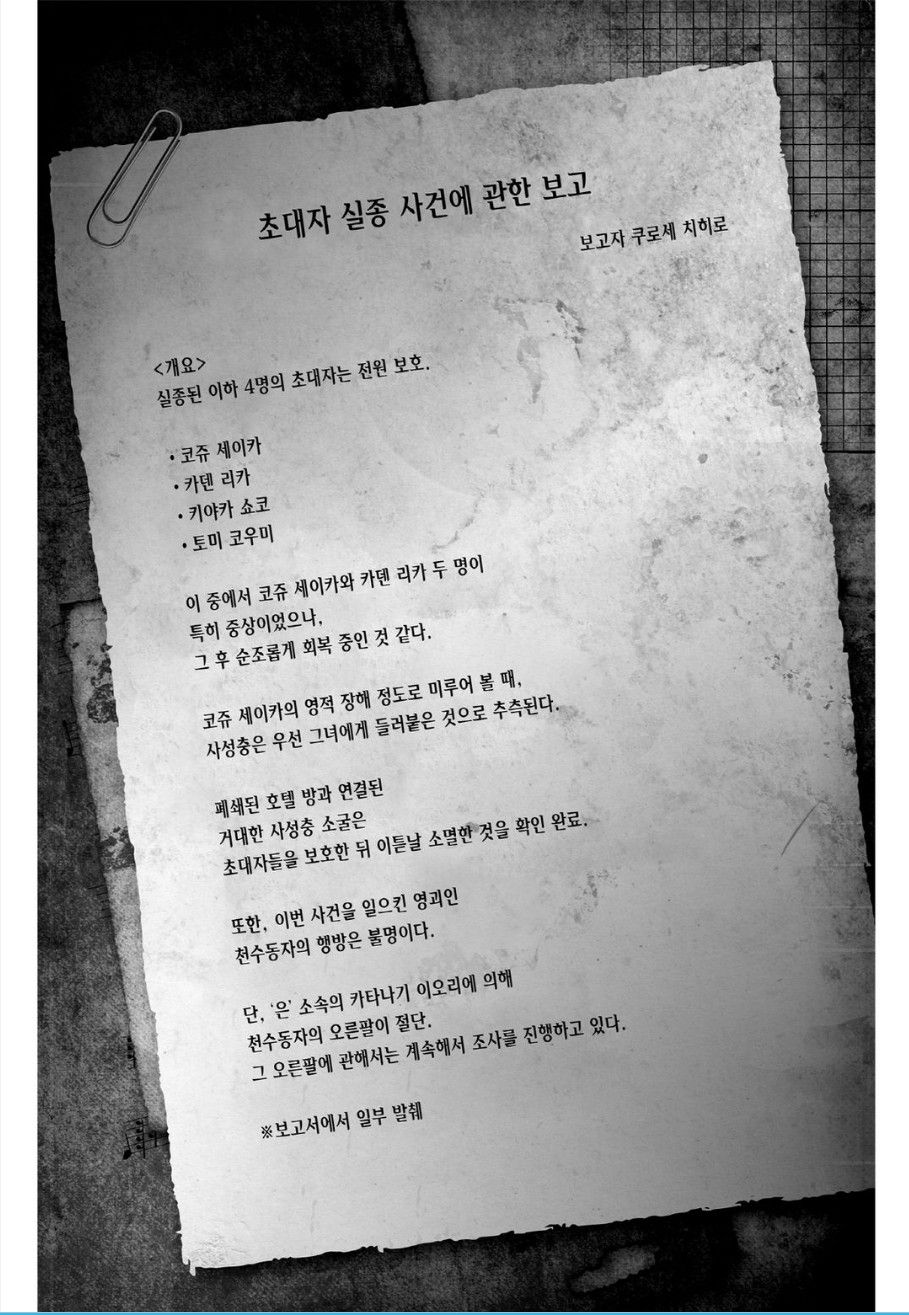 초대자 실종 사건에 관한 보고
보고자 쿠로세 치히로
<개요>
실종된 이하 4명의 초대자는 전원 보호.
• 코쥬 세이카
• 카덴 리카
• 키야카 쇼코
• 토미 코우미
이 중에서 코쥬 세이카와 카덴 리카 두 명이
특히 중상이었으나,
그 후 순조롭게 회복 중인 것 같다.
코쥬 세이카의 영적 장해 정도로 미루어 볼 때,
사성충은 우선 그녀에게 들러붙은 것으로 추측된다.
폐쇄된 호텔 방과 연결된
거대한 사성충 소굴은
초대자들을 보호한 뒤 이튿날 소멸한 것을 확인 완료.
또한, 이번 사건을 일으킨 영괴인
천수동자의 행방은 불명이다.
단, ‘은’ 소속의 카타나기 이오리에 의해
천수동자의 오른팔이 절단.
그 오른팔에 관해서는 계속해서 조사를 진행하고 있다.
※보고서에서 일부 발췌